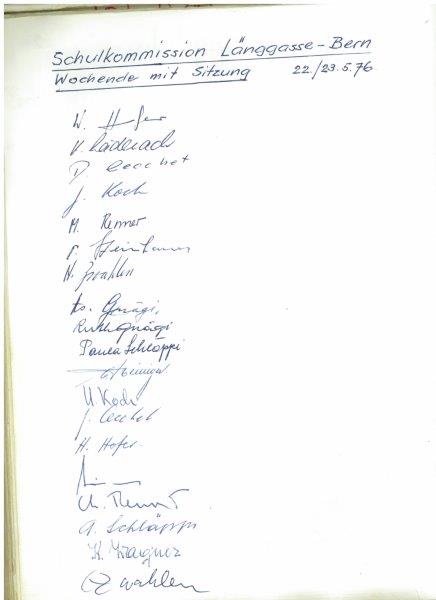 Schulkommission Länggasse-Bern
Wochende mit Sitzung 22./23.5.76
W. Hofer
V. Läderach
D. Cecchet
J. Koch
M. Renner
N. Zwahlen
Gnägi
Ruth Gnägi
Paula Schläppi
U. Koch
J. Cecchet
H. Hofer
Ch. Renner
A. Schläppi
K. Wagner
Zwahlen